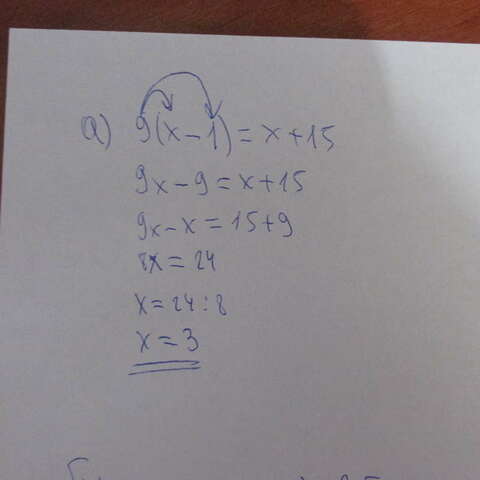 a) 9(x-1)=x+15
9x-9=x+15
9x-x=15+9
8x=24
x=24:8
x=3